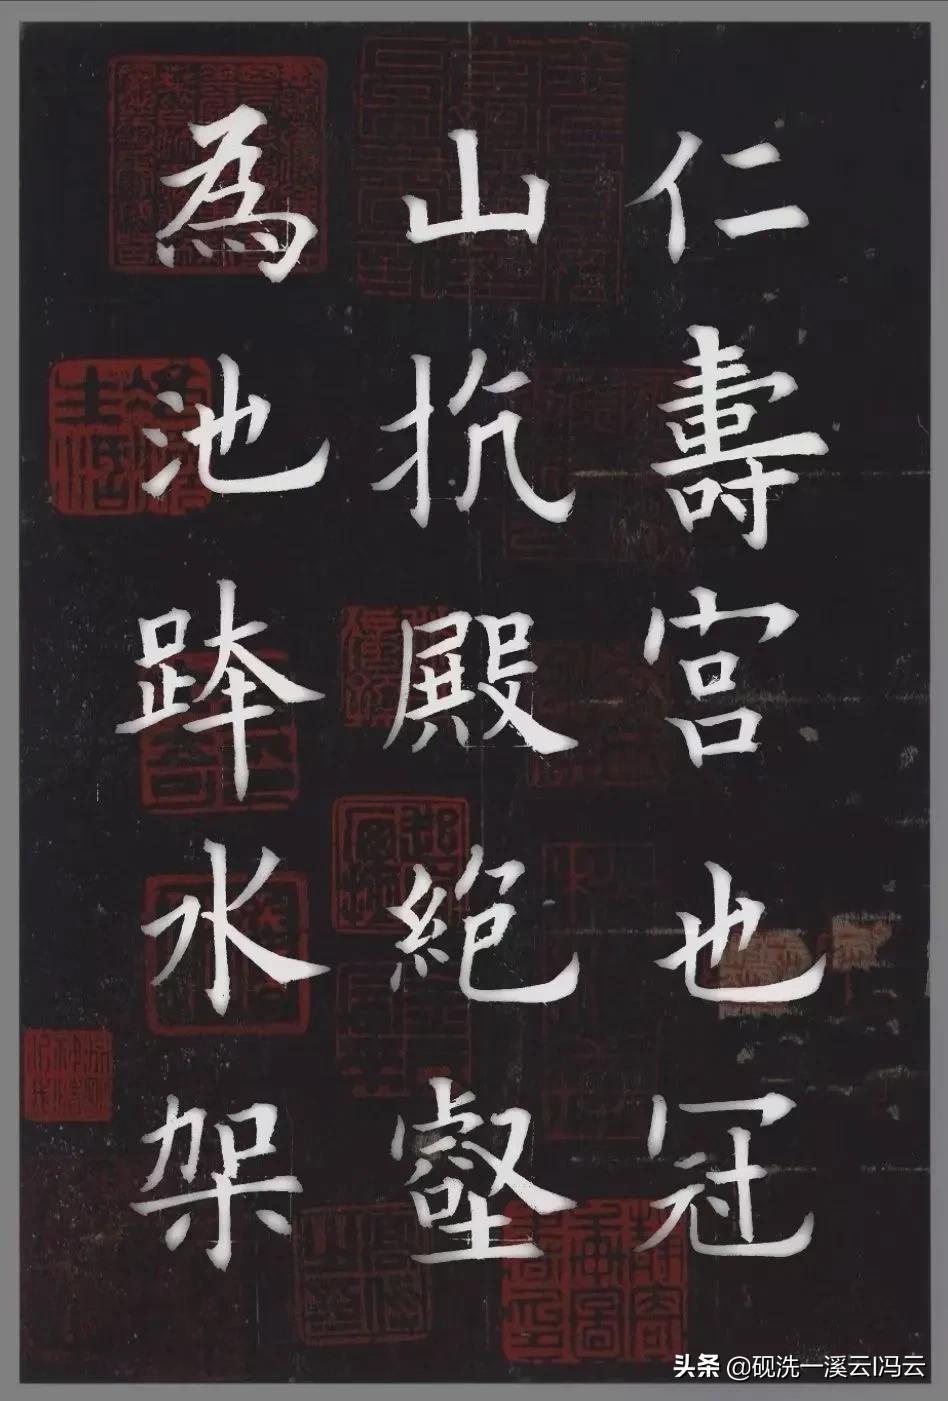 仁壽宮也冠
山抗殿絕壑
為池跨水架
头条 @砚洗一溪云I冯云